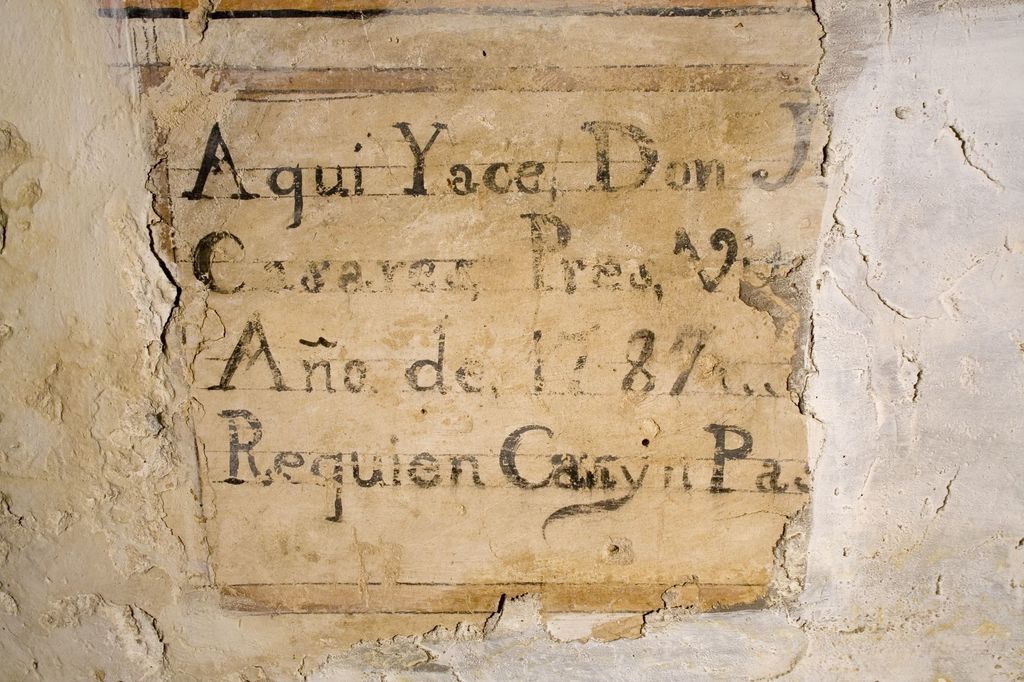 Aqui Yace, Don J
Casares, Pres,
Año de, 1787
Requien Canyn Pas